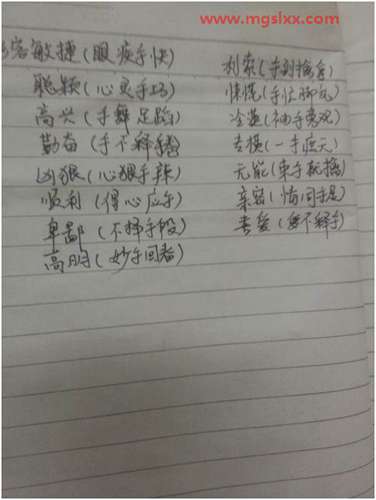 www.mgslxx.com
容敏捷(眼疾手快)
聪颖(心灵手巧)
高兴(手舞足蹈)
勤奋(手不释卷)
凶狠(心狠手辣)
顺利(得心应手)
卑鄙(不择手段)
高明(妙手回春)
利索(手到擒来)
慌忙(手忙脚乱)
冷淡(袖手旁观)
专横(一手遮天)
无能(束手就擒)
亲密(情同手足)
喜爱(爱不释手)